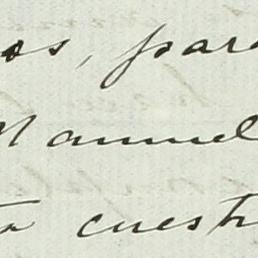 os, para
Manuel
ta cuest